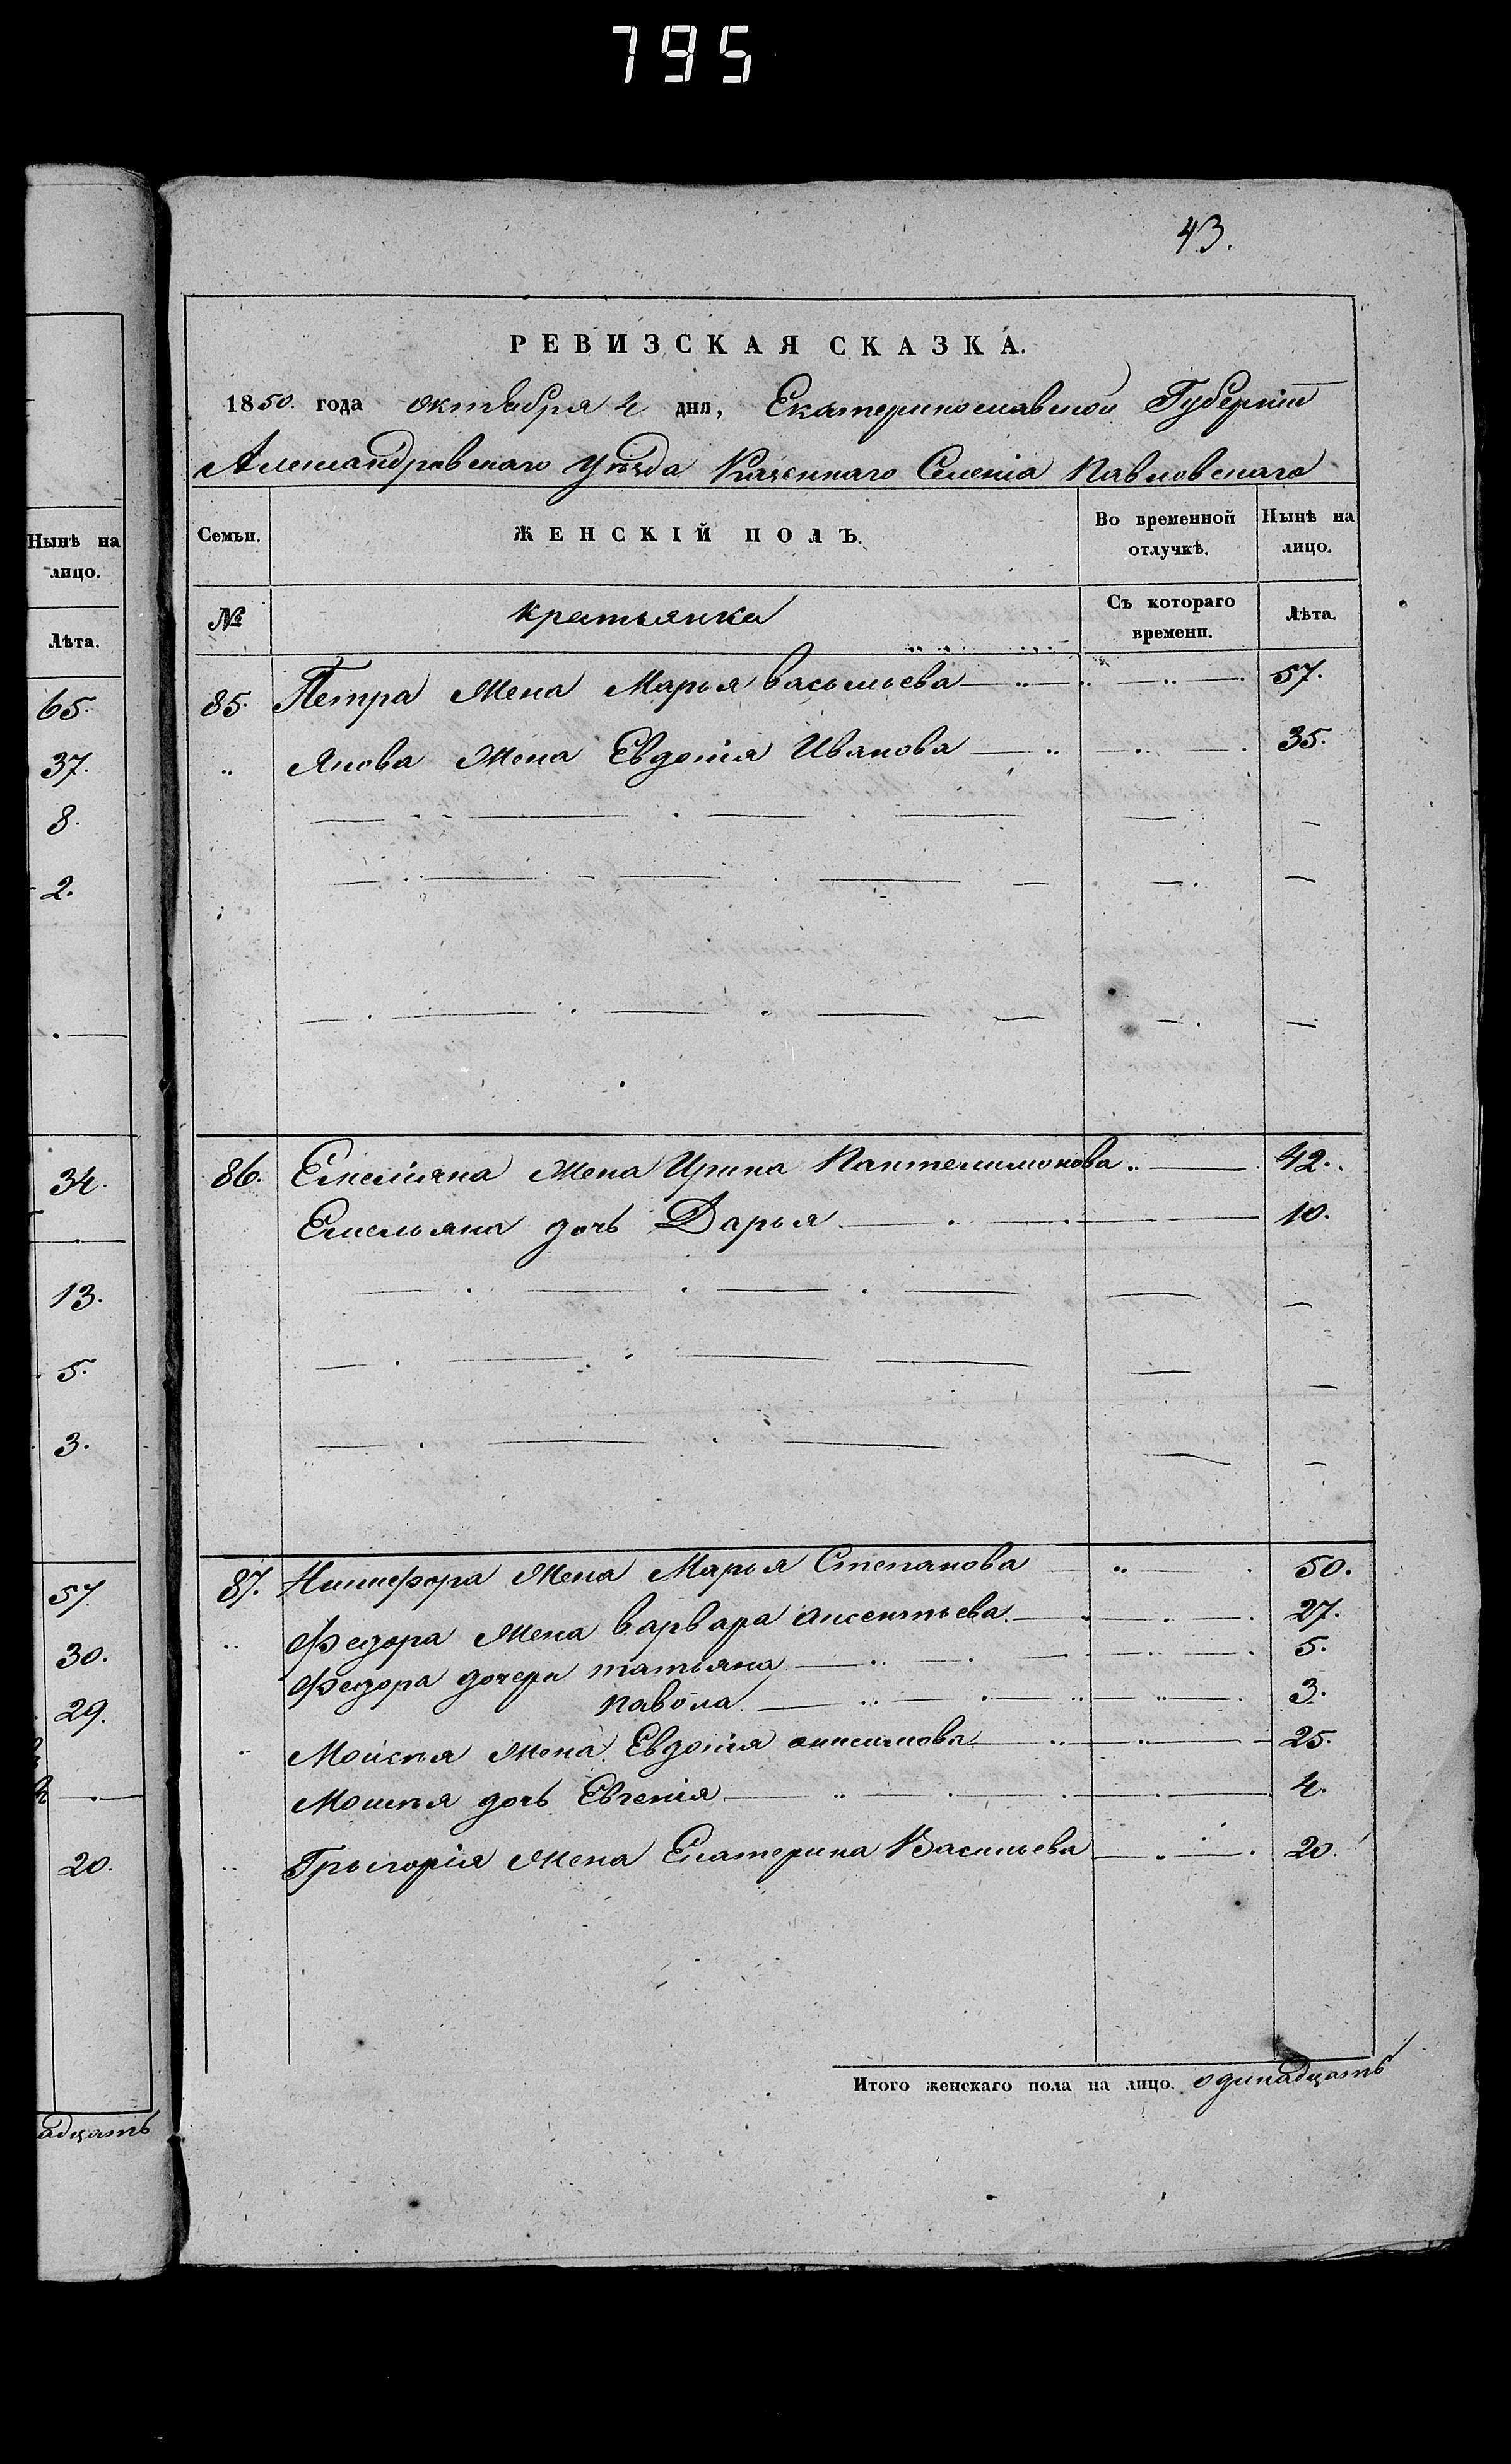 795
43.
РЕВИЗСКАЯ СКАЗКА.
1850. года октября 4 дня, Екатеринославской Губерніи
Александровскаго Уѣзда Казеннаго Селенія Павловскаго
Семьи. ЖЕНСКІЙ ПОЛЪ. Во временной отлучкѣ. Нынѣ на лицо.
№ Съ котораго времени. Лѣта.
85. Петра жена Марья Васильева 57.
„ Якова жена Евдокія Иванова 35.
86. Емельяна жена Ирина Пантелимонова 42.
Емельяна дочь Дарья 10.
87. Никифора жена Марья Степанова 50.
„ Федора жена Варвара Аксентьева 27.
Федора дочери татьяна 5.
павола 3.
„ Моисѣя жена Евдокія онисимова 25.
Моисѣя дочь Евгенія 4.
„ Григорія жена Екатерина Васильева 20.
Итого женскаго пола на лицо. одинадцать
Нынѣ на
лицо.
Лѣта.
65.
37.
8.
2.
34.
13.
5.
3.
57.
30.
29.
20.
адцать